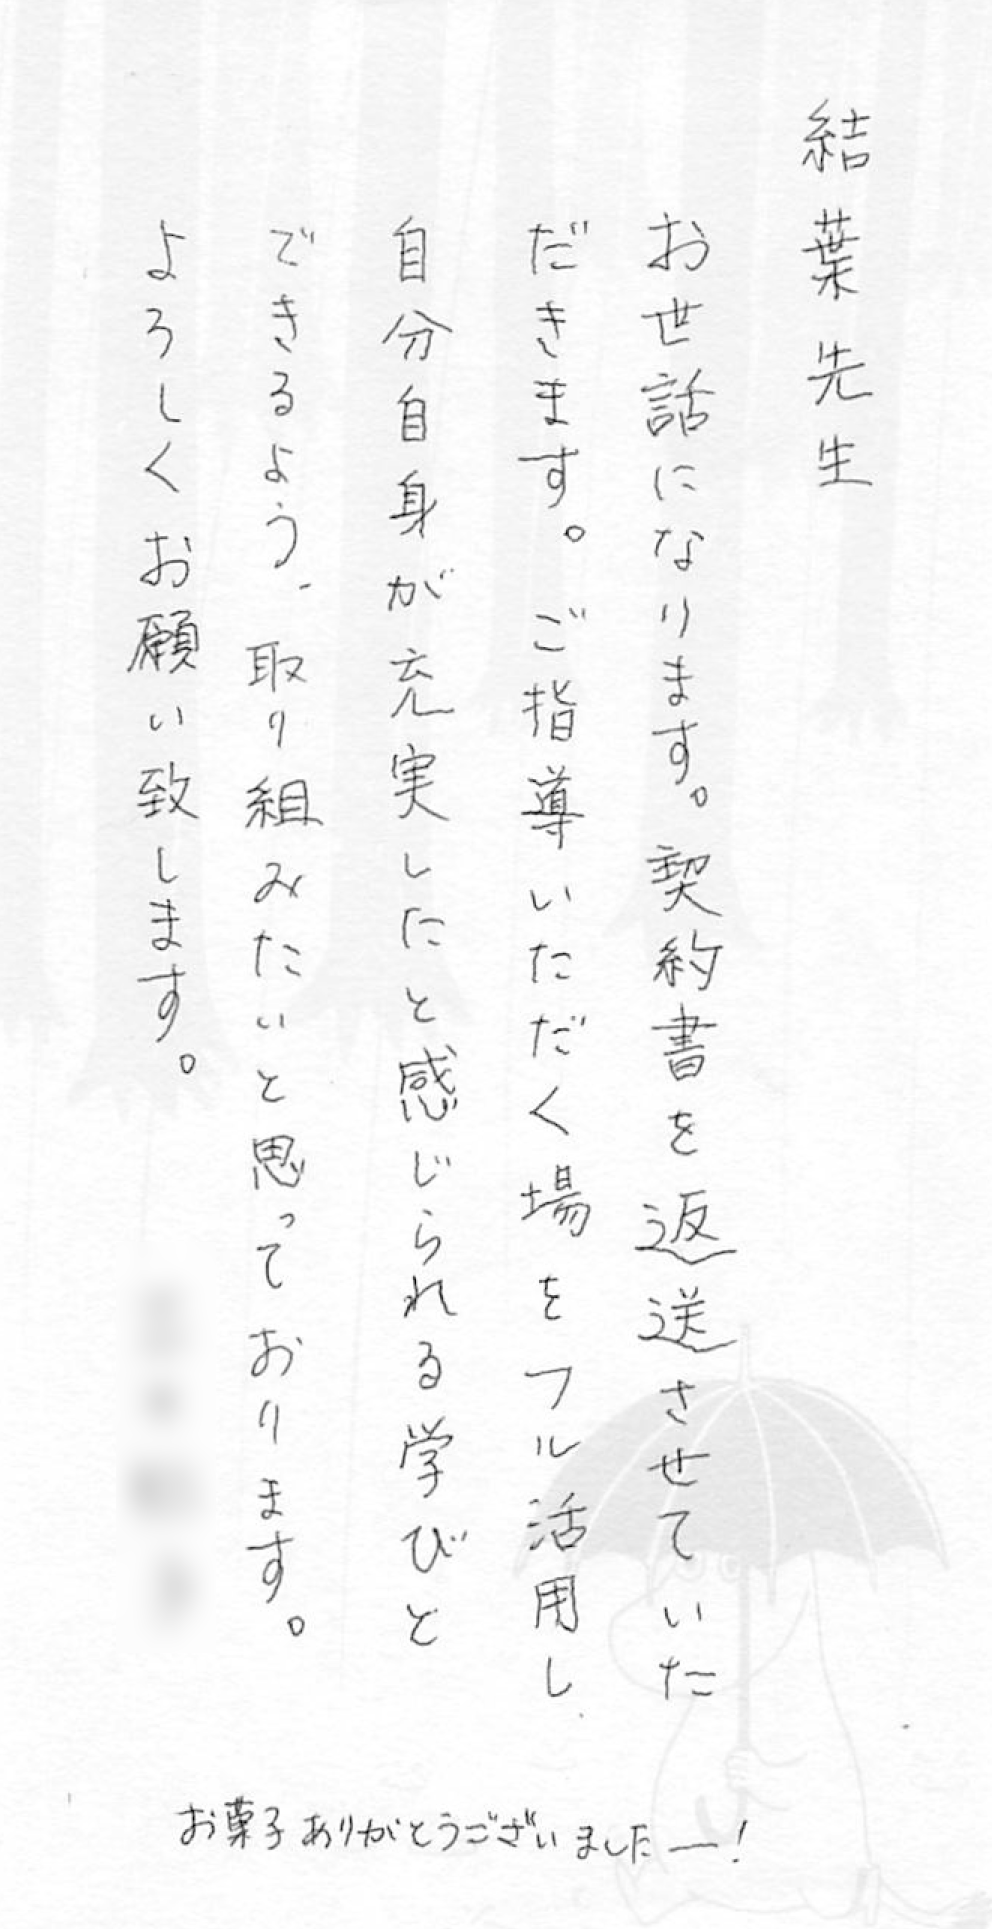 結葉先生
お世話になります。契約書を返送させていた
だきます。ご指導いただく場をフル活用し、
自分自身が充実したと感じられる学びと
できるよう、取り組みたいと思っております。
よろしくお願い致します。
お菓子ありがとうございましたー!